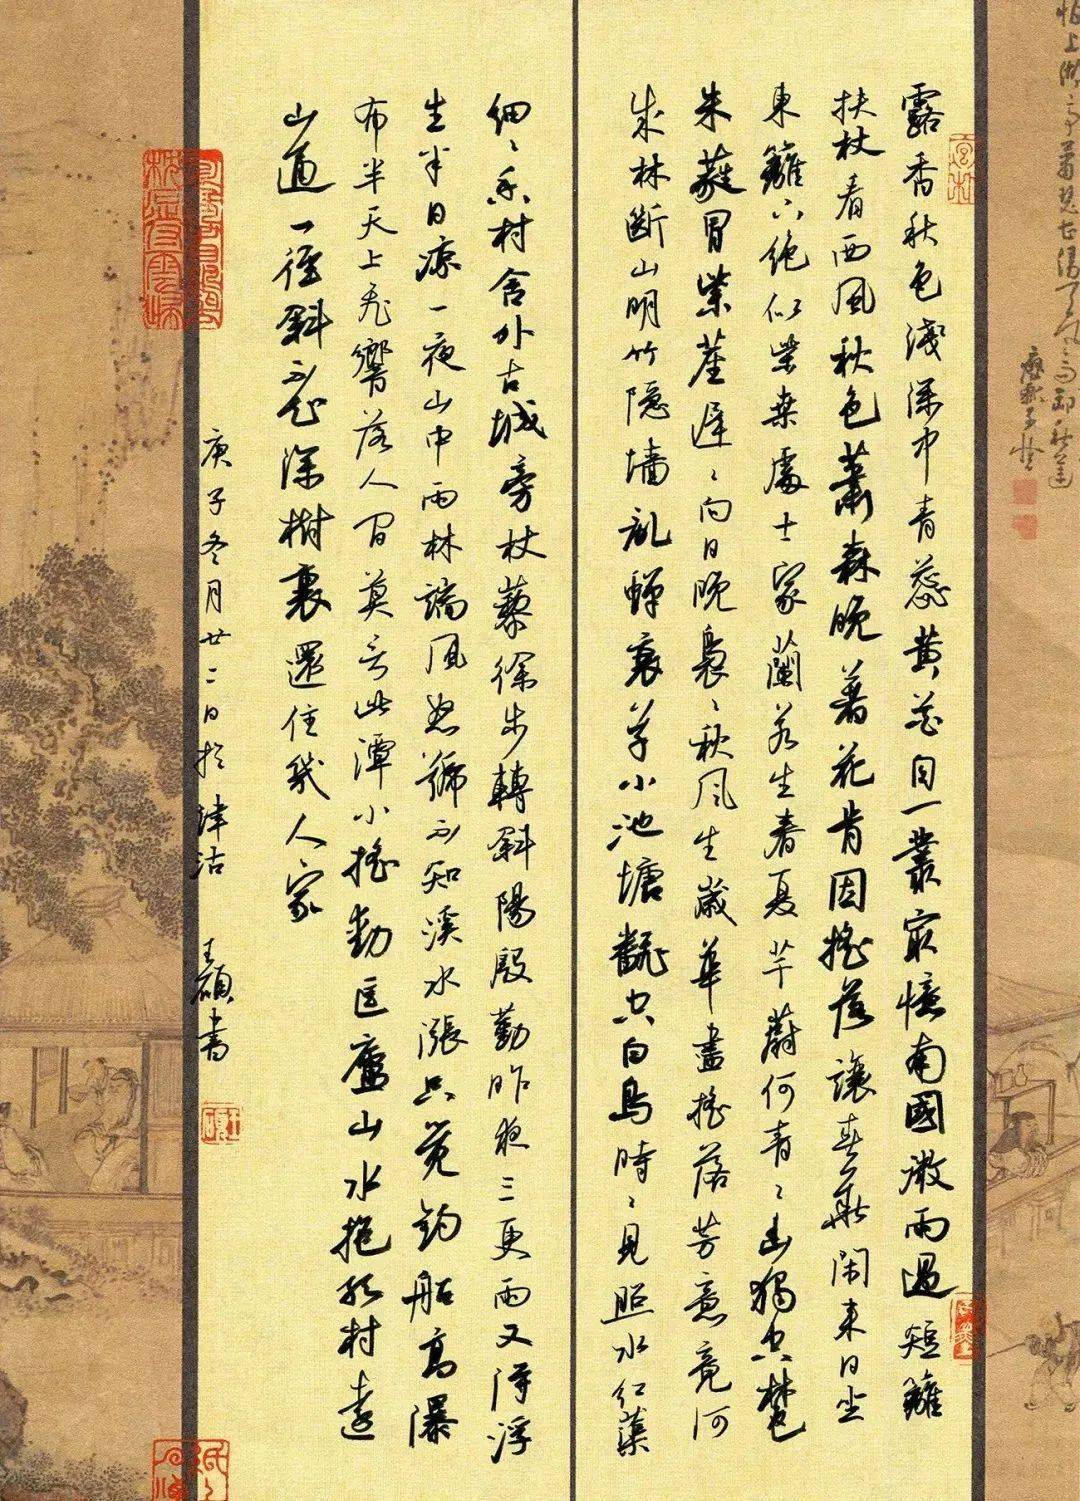 露香秋色淺深中青蕊黄花自一叢最憶南國微雨過短籬
扶杖看西風秋色蕭森晚著花肯因摇落讓春華閑來日坐
東籬下絶似柴桑處士家蘭若生春夏芊蔚何青々幽獨空林色
朱蕤冒紫莖遲々白日晚裊々秋風生歲華盡摇落芳意竟何
成林斷山明竹隱墻亂蟬衰草小池塘翻空白鳥時々見照水紅蕖
細々香村舍外古城旁杖藜徐步轉斜陽殷勤昨夜三更雨又得浮
生半日凉一夜山中雨林端風怒號不知溪水漲只覺釣船高瀑
布半天上飛響落人間莫言此潭小摇動匡廬山水抱孤村遠
山通一徑斜不知深樹裏還住幾人家
庚子冬月廿二日於津沽 王碩書